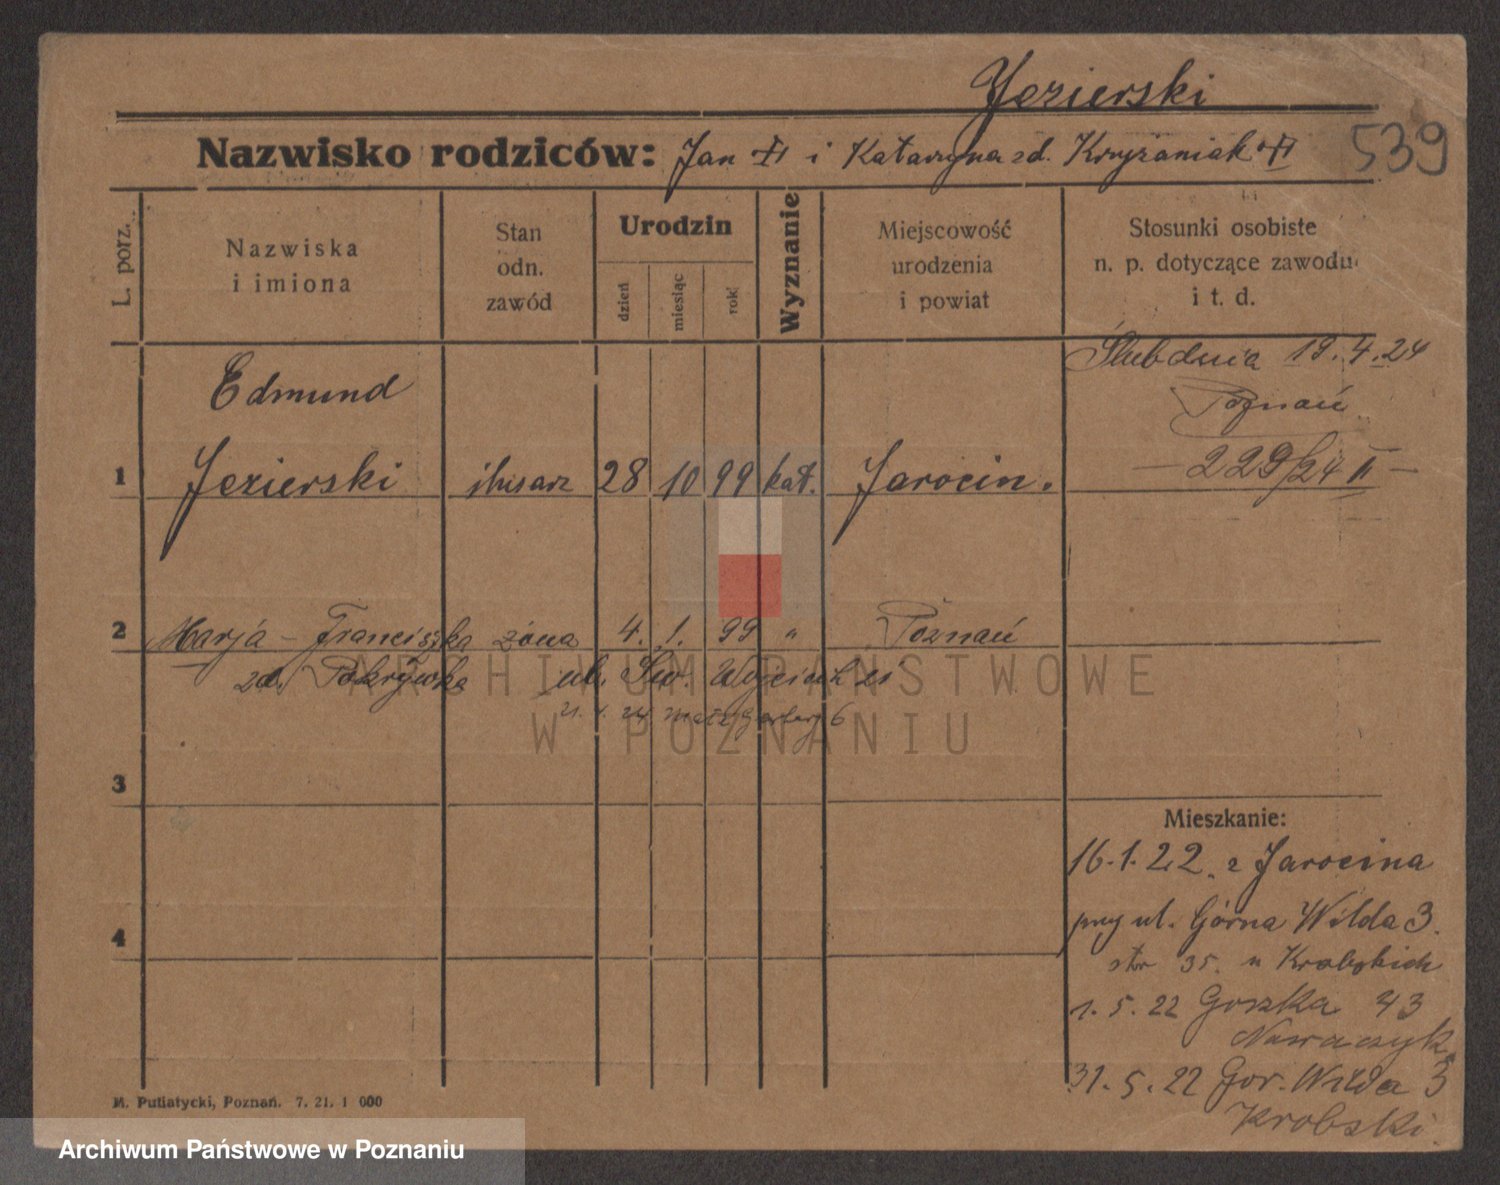 Jezierski
539
Nazwisko rodziców: Jan i Katarzyna zd. Kryżaniak
L. porz.
Nazwiska
i imiona
Stan
odn.
zawód
Urodzin
dzień
miesiąc
rok
Wyznanie
Miejscowość
urodzenia
i powiat
Stosunki osobiste
n. p. dotyczące zawodu
i t. d.
Ślub dnia 19.4.24
Poznań
229/24 II
Edmund
1 Jezierski ślusarz 28 10 99 kat. Jarocin.
2 Marja - Franciszka żona 4. 1. 99 " Poznań
zd. Pokrywka ul. Św. Wojciech
3
4
Mieszkanie:
16.1.22. z Jarocina
przy ul. Górna Wilda 3.
35. u
1.5.22 43
Nawaczyk
31.5.22 Gór. Wilda 3
Krobski.
M. Putiatycki, Poznań. 7. 21. 1 000
ARCHIWUM PAŃSTWOWE
W POZNANIU
Archiwum Państwowe w Poznaniu